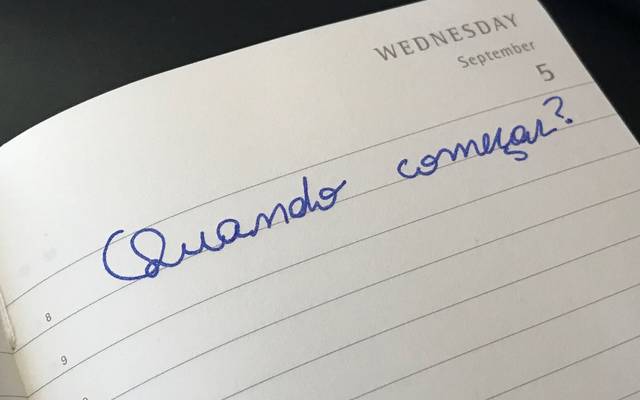 WEDNESDAY
September
5
Quando começar?
8
9